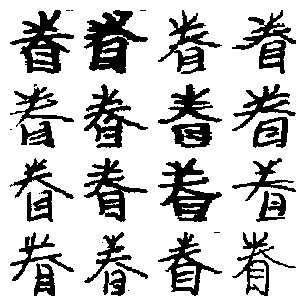 眷眷眷眷
眷眷眷眷
眷眷眷眷
眷眷眷眷